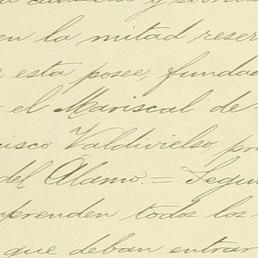 en la mitad reser
esta posee, funda
el Mariscal de
isco Valdivielso, pr
del Alamo. = Segu
mprenden todos los
que deban entrar